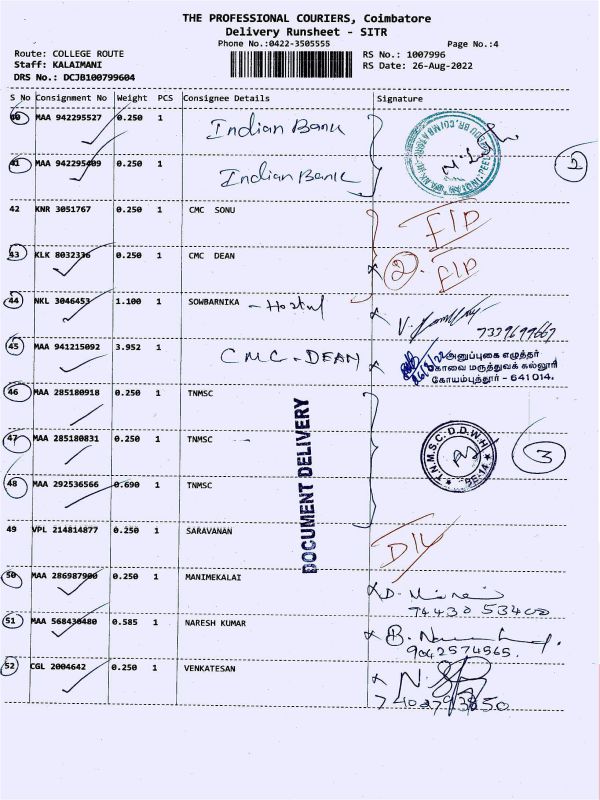 THE PROFESSIONAL COURIERS, Coimbatore
Delivery Runsheet - SITR
Phone No.:0422-3505555
Page No.:4
Route: COLLEGE ROUTE
RS No.: 1007996
Staff: KALAIMANI
RS Date: 26-Aug-2022
DRS No.: DCJB100799604
S No Consignment No Weight PCS Consignee Details Signature
40 MAA 942295527 0.250 1 Indian Bank
41 MAA 942295409 0.250 1 Indian Bank
2
42 KNR 3051767 0.250 1 CMC SONU
43 KLK 8032336 0.250 1 CMC DEAN
2.
44 NKL 3046453 1.100 1 SOWBARNIKA - Hostel
7339699667
45 MAA 941215092 3.952 1 CMC - DEAN
26/8/22 அனுப்புகை எழுத்தர்
கோவை மருத்துவக் கல்லூரி
கோயம்புத்தூர் - 641014.
46 MAA 285180918 0.250 1 TNMSC
47 MAA 285180831 0.250 1 TNMSC
T.N.M.S.C.D.D.W.H
3
48 MAA 292536566 0.690 1 TNMSC
DOCUMENT DELIVERY
49 VPL 214814877 0.250 1 SARAVANAN
D/L
50 MAA 286987900 0.250 1 MANIMEKALAI
74430 53400
51 MAA 568430480 0.585 1 NARESH KUMAR
9042574565.
52 CGL 2004642 0.250 1 VENKATESAN